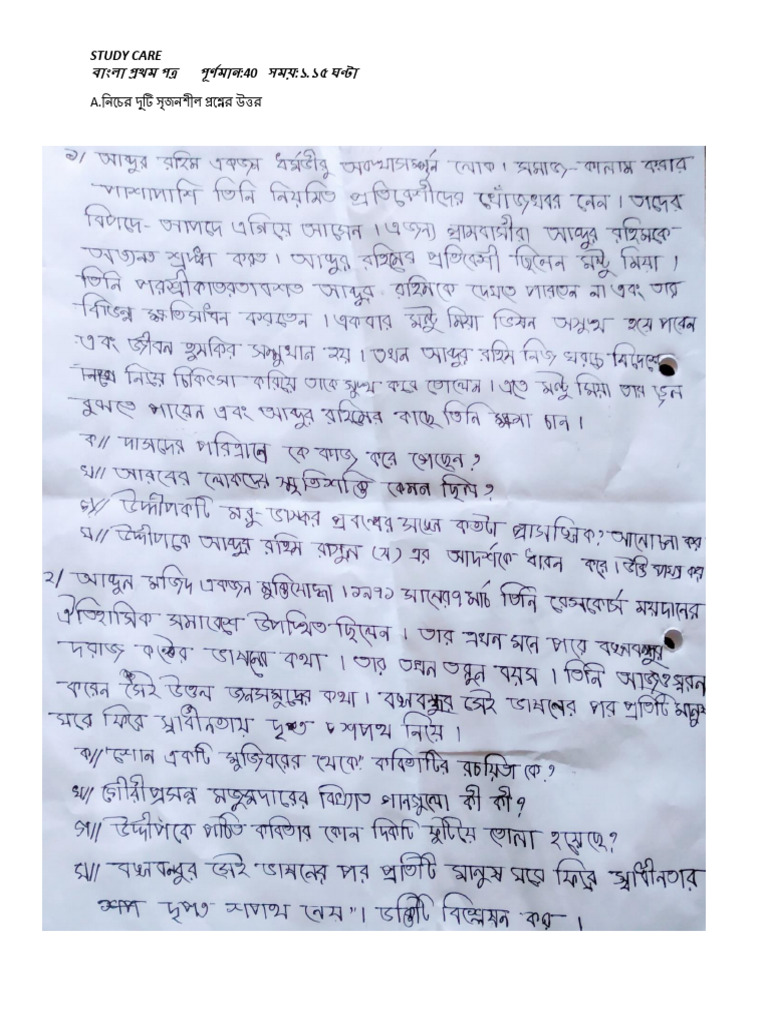 STUDY CARE
বাংলা প্রথম পত্র পূর্ণমান:40 সময়:১.১৫ ঘন্টা
A.নিচের দুটি সৃজনশীল প্রশ্নের উত্তর
১/ আব্দুর রহিম একজন ধর্মভীরু অবস্থাসম্পন্ন লোক। সমাজ-কালাম করার
পাশাপাশি তিনি নিয়মিত প্রতিবেশীদের খোঁজখবর নেন। তাদের
বিপদে-আপদে এগিয়ে আসেন। এজন্য গ্রামবাসীরা আব্দুর রহিমকে
অত্যন্ত শ্রদ্ধা করত। আব্দুর রহিমের প্রতিবেশী ছিলেন মন্টু মিয়া।
তিনি পরশ্রীকাতরতাবশত আব্দুর রহিমকে দেখতে পারতেন না এবং তার
বিভিন্ন ক্ষতিসাধন করতেন। একবার মন্টু মিয়া ভিষন অসুস্থ হয়ে পরেন
এবং জীবন হুমকির সম্মুখীন হয়। তখন আব্দুর রহিম নিজ খরচে বিদেশে
নিয়ে চিকিৎসা করিয়ে তাকে সুস্থ করে তোলেন। এতে মন্টু মিয়া তার ভুল
বুঝতে পারেন এবং আব্দুর রহিমের কাছে তিনি ক্ষমা চান।
ক// দাসদের পরিত্রানে কে কাজ করে গেছেন?
খ// আরবের লোকদের স্মৃতিশক্তি কেমন ছিল?
গ// উদ্দীপকটি মরু-ভাস্কর প্রবন্ধের সঙ্গে কতটা প্রাসঙ্গিক? আলোচনা কর
ঘ// উদ্দীপকে আব্দুর রহিম রাসুল (স) এর আদর্শকে ধারন করে। উক্তি ব্যাখ্যা কর
২/ আব্দুল মজিদ একজন মুক্তিযোদ্ধা। ১৯৭১ সালের ৭ মার্চ তিনি রেসকোর্স ময়দানের
ঐতিহাসিক সমাবেশে উপস্থিত ছিলেন। তার এখন মনে পরে বঙ্গবন্ধুর
দরাজ কন্ঠের ভাষনের কথা। তার তখন তরুন বয়স। তিনি আজও স্মরন
করেন সেই উত্তাল জনসমুদ্রের কথা। বঙ্গবন্ধুর সেই ভাষনের পর প্রতিটি মানুষ
ঘরে ফিরে স্বাধীনতায় দৃপ্ত শপথ নিয়ে।
ক// "শোন একটি মুজিবরের থেকে" কবিতাটির রচয়িতা কে?
খ// গৌরীপ্রসন্ন মজুমদারের বিখ্যাত গানগুলো কী কী?
গ// উদ্দীপকে পঠিত কবিতার কোন দিকটি ফুটিয়ে তোলা হয়েছে?
ঘ// বঙ্গবন্ধুর সেই ভাষনের পর প্রতিটি মানুষ ঘরে ফিরে স্বাধীনতার
দৃপ্ত শপথ নেয়"। উক্তিটি বিশ্লেষন কর।